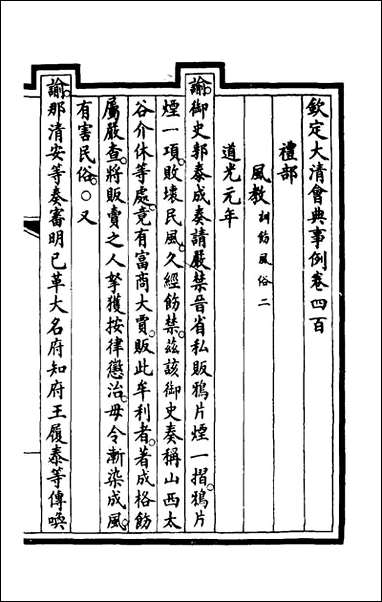 欽定大清會典事例卷四百
禮部
風教訓飭風俗二
道光元年
諭御史郭泰成奏請嚴禁晉省私販鴉片煙一摺。鴉片
煙一項。敗壞民風。久經飭禁。茲該御史奏稱山西太
谷介休等處。竟有富商大賈。販此牟利者。著成格飭
屬嚴查。將販賣之人拏獲。按律懲治。毋令漸染成風。
有害民俗。○又
諭那清安等奏審明已革大名府知府王履泰等傳喚